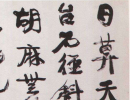 日暮天
台石徑斜
胡麻